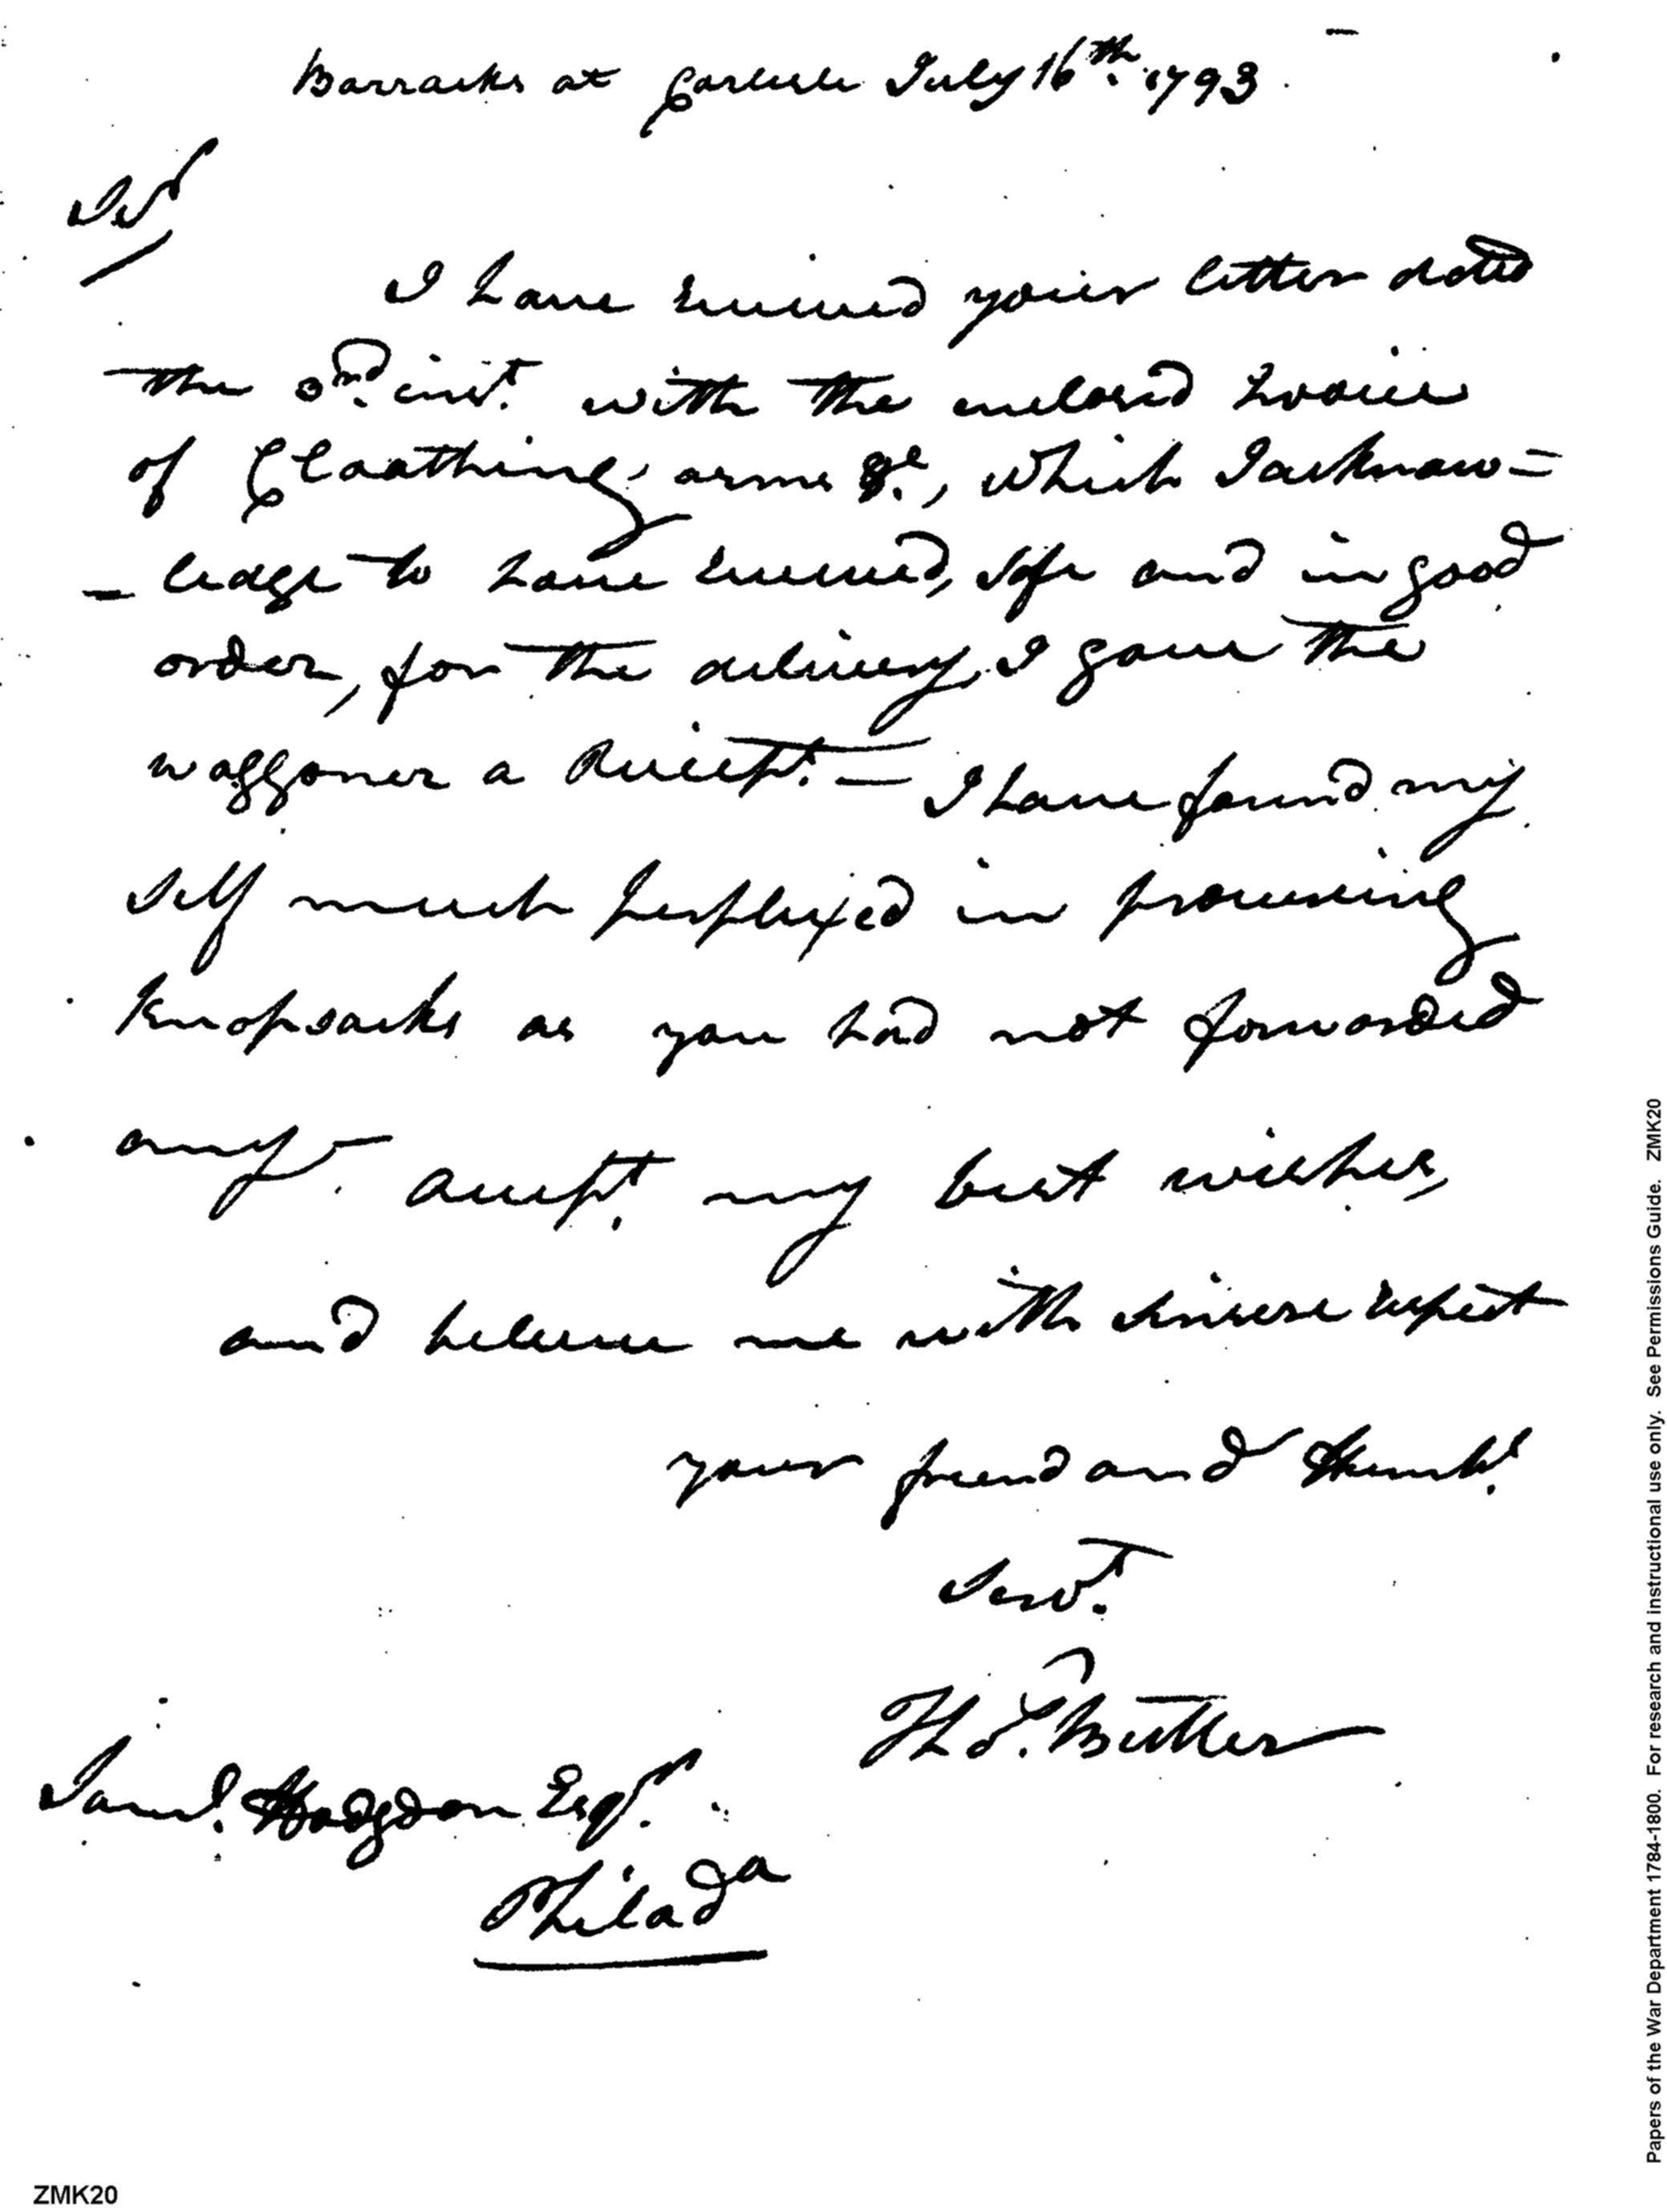 Barracks at Carlisle July 16th. 1793.
Sir
I have received your letter dated
the 3rd. inst. with the inclosed Invoice
of Cloathing, arms &c., which I acknow=
-ledge to have received, safe and in good
order, for the delivery, I gave the
waggoner a Receipt. — I have found my
self much perplexed in procuring
Knapsacks as you had not forwarded
any — Accept. my best wishes,
and believe me with sincere respect
your friend and Humbl.
Servt.
Thos. Butler
Saml. Hodgdon Esqr.
Philada
Papers of the War Department 1784-1800. For research and instructional use only. See Permissions Guide. ZMK20
ZMK20